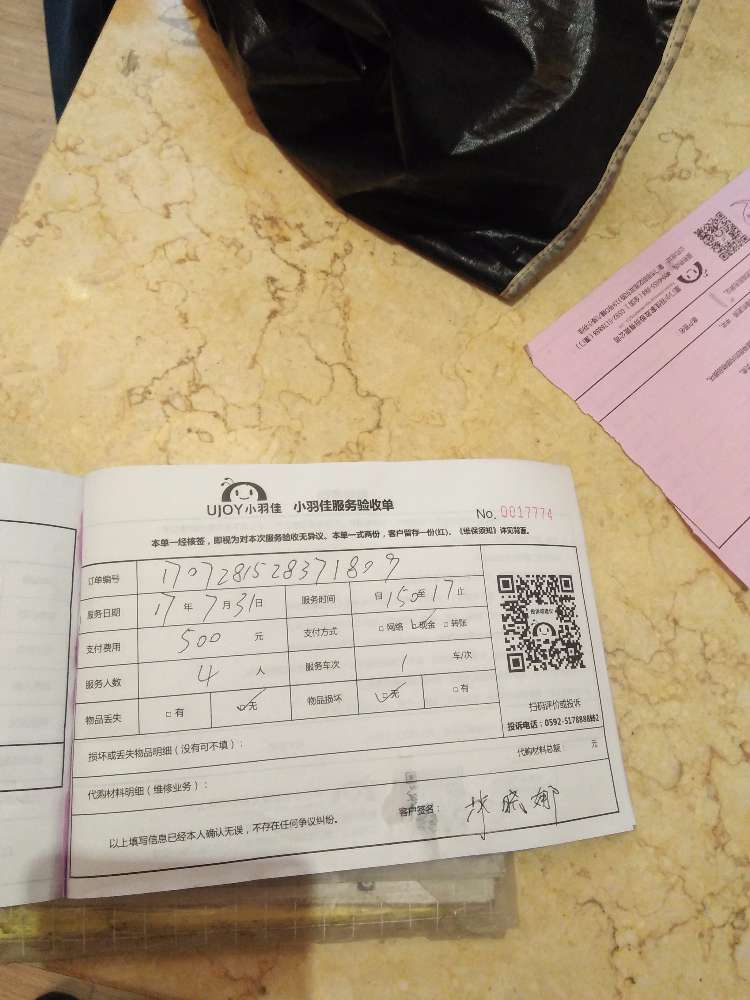 UJOY小羽佳 小羽佳服务验收单
No. 0017774
本单一经核签，即视为对本次服务验收无异议、本单一式两份，客户留存一份(红)，《维保须知》详见背面。
订单编号 1707281528371809
服务日期 17年7月31日 服务时间 自150至17止
支付费用 500 元 支付方式 □网络 □现金 □转账
服务人数 4 人 服务车次 1 车/次
物品丢失 □有 □无 物品损坏 □无 □有
扫码评价或投诉
投诉电话：0592-5178888转2
损坏或丢失物品明细（没有可不填）：
代购材料明细（维修业务）： 代购材料总额： 元
以上填写信息已经本人确认无误，不存在任何争议纠纷。 客户签名： 晓娜